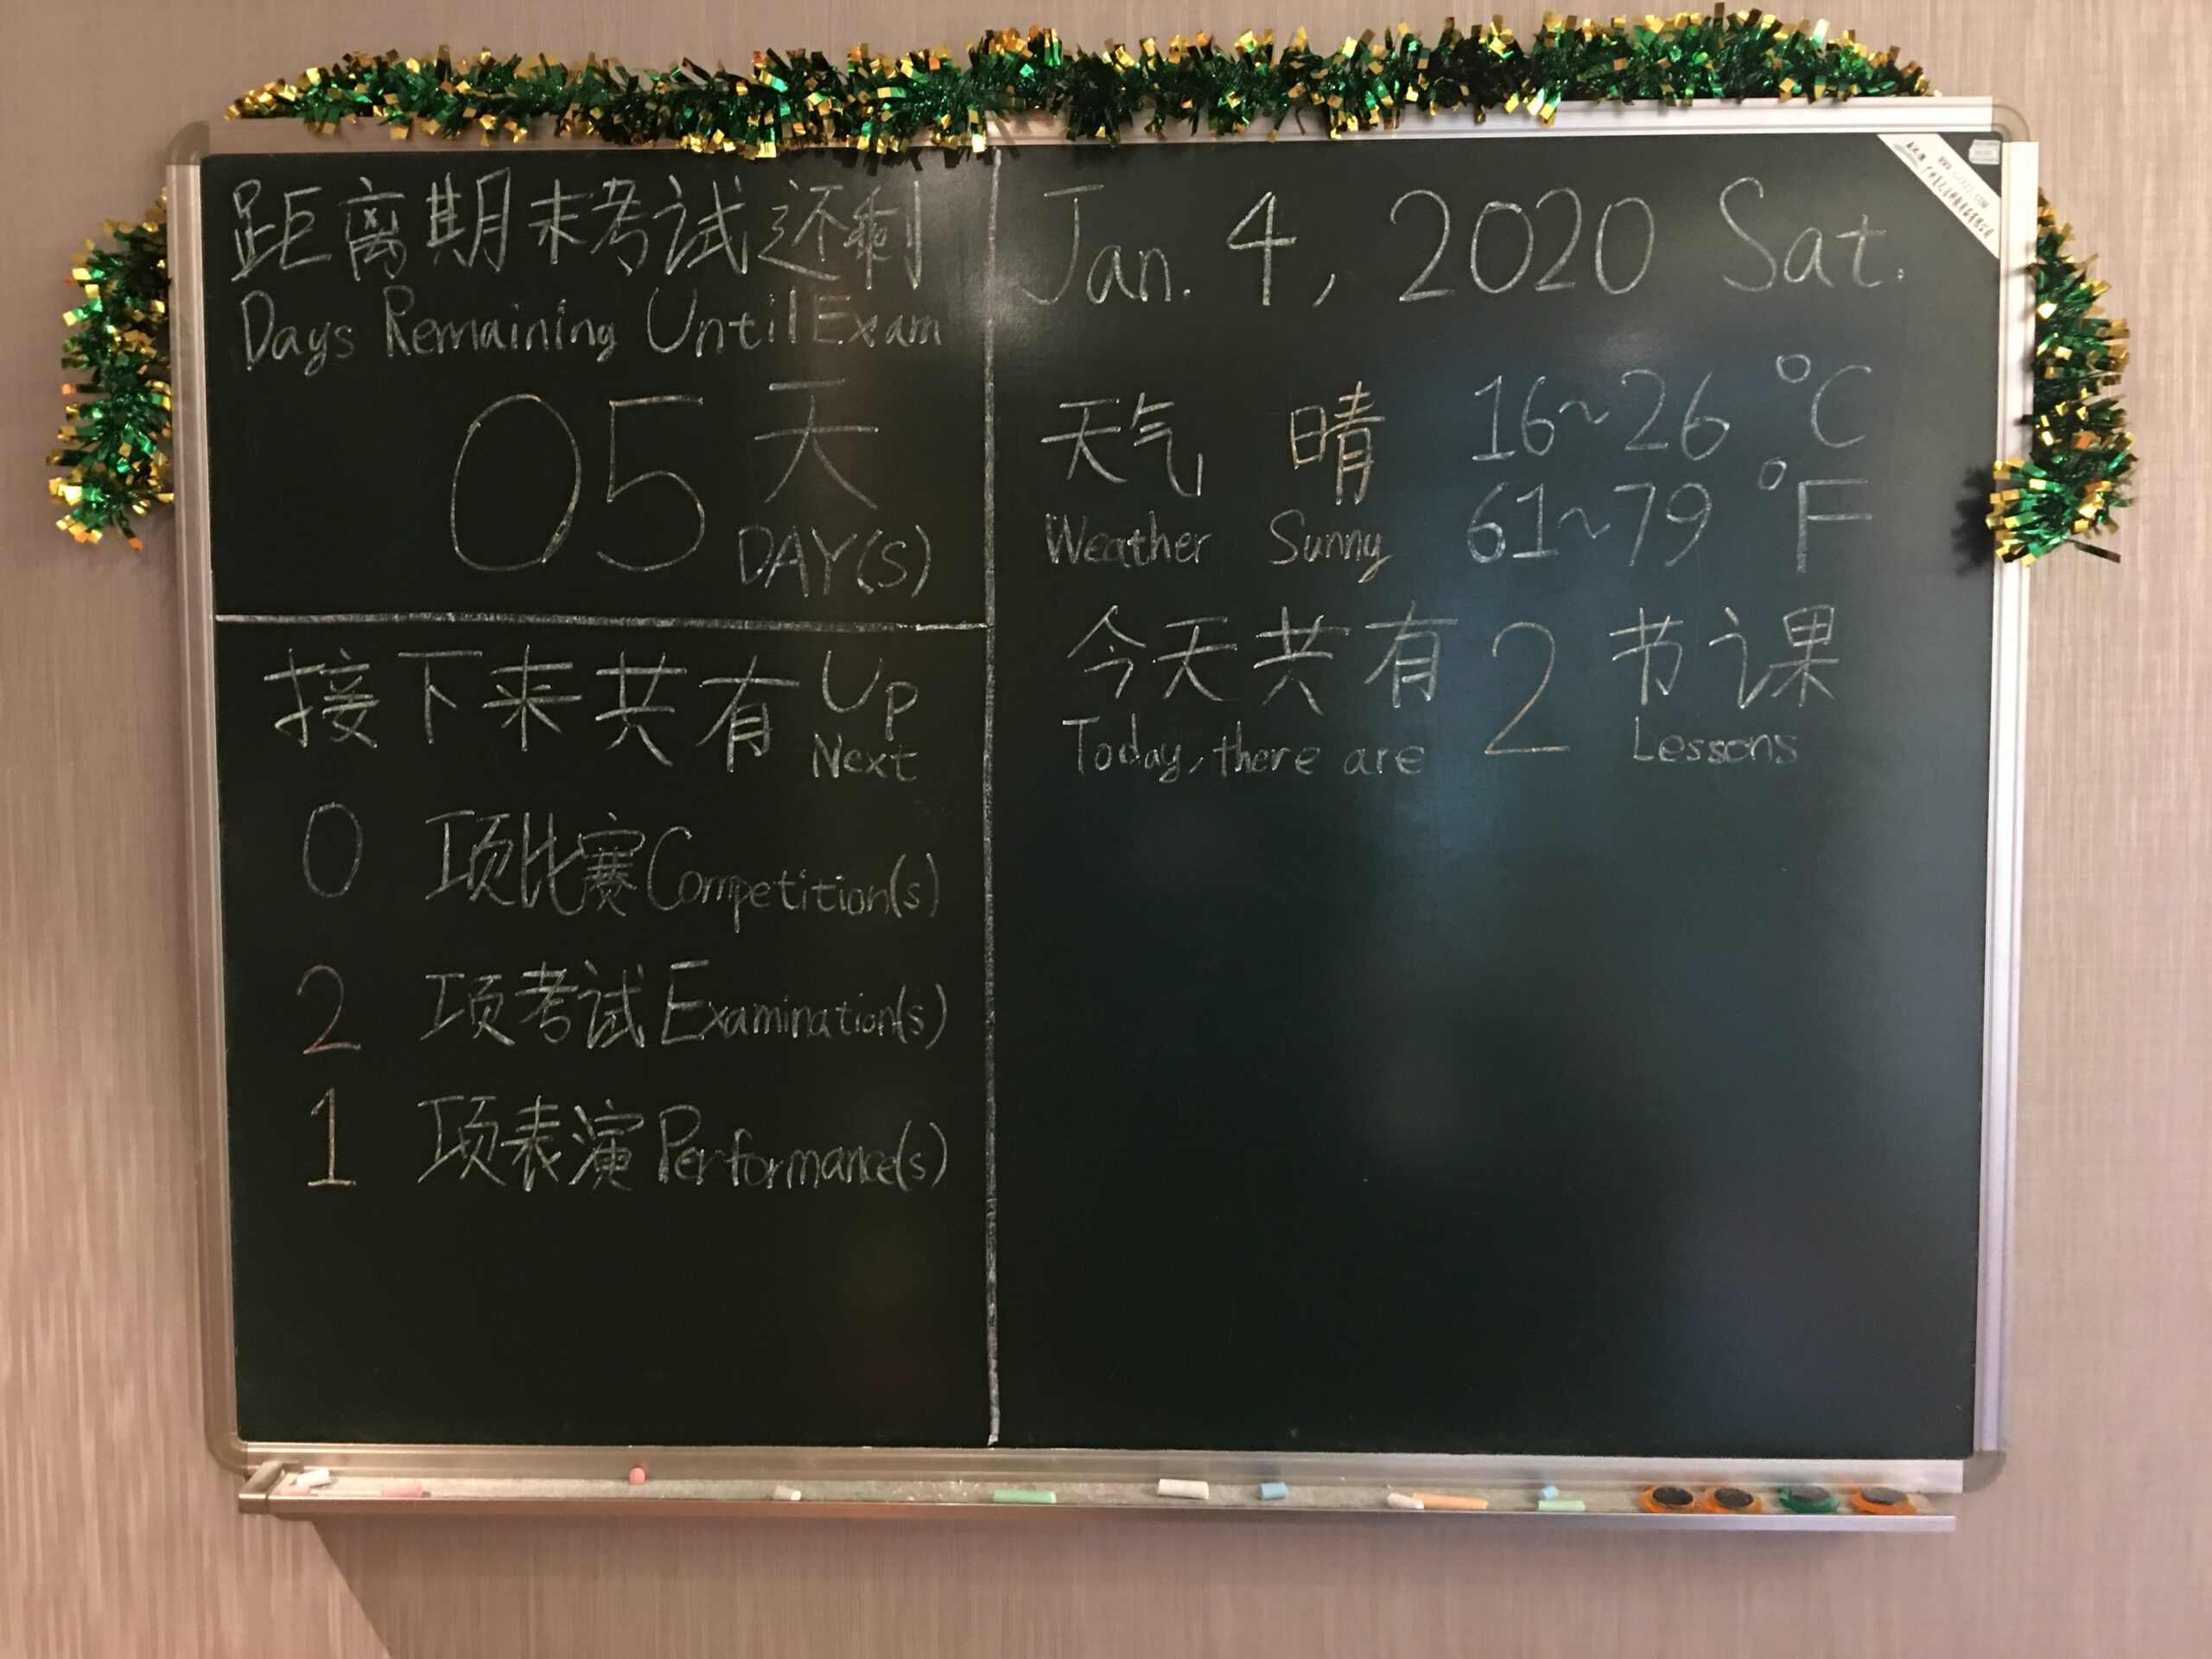 距离期末考试还剩
Days Remaining Until Exam
05 天
DAY(S)
接下来共有 Up
Next
0 项比赛 Competition(s)
2 项考试 Examination(s)
1 项表演 Performance(s)
Jan. 4, 2020 Sat.
天气 晴 16~26 °C
Weather Sunny 61~79 °F
今天共有 2 节课
Today, there are Lessons